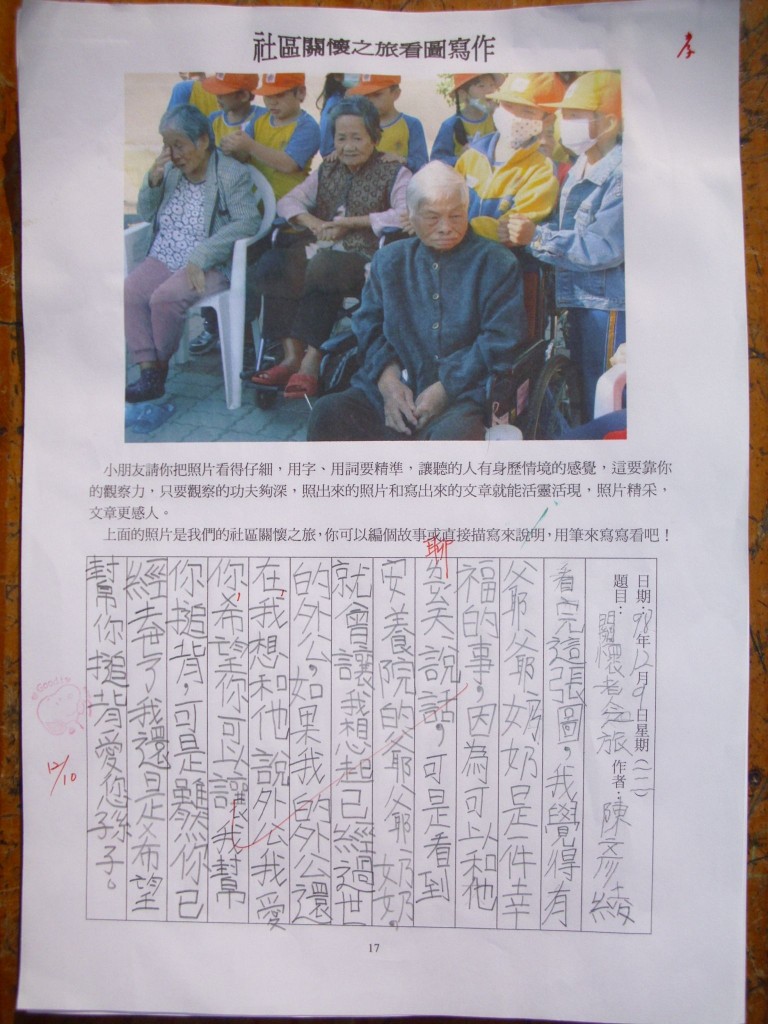 社區關懷之旅看圖寫作
孝
小朋友請你把照片看得仔細，用字、用詞要精準，讓聽的人有身歷情境的感覺，這要靠你
的觀察力，只要觀察的功夫夠深，照出來的照片和寫出來的文章就能活靈活現，照片精采，
文章更感人。
上面的照片是我們的社區關懷之旅，你可以編個故事或直接描寫來說明，用筆來寫寫看吧！
日期：98年12月9日星期(二)
題目：關懷老人之旅 作者：陳彥綾
看完這張圖，我覺得有
爺爺奶奶是一件幸
福的事，因為可以和他
聊天說話，可是看到
安養院的爺爺奶奶，
就會讓我想起已經過世
的外公，如果我的外公還
在，我想和他說外公我愛
你，希望你可以讓我幫
你搥背，可是雖然你已
經走了我還是希望
幫你搥背愛您孫子。
Good
12/10
17